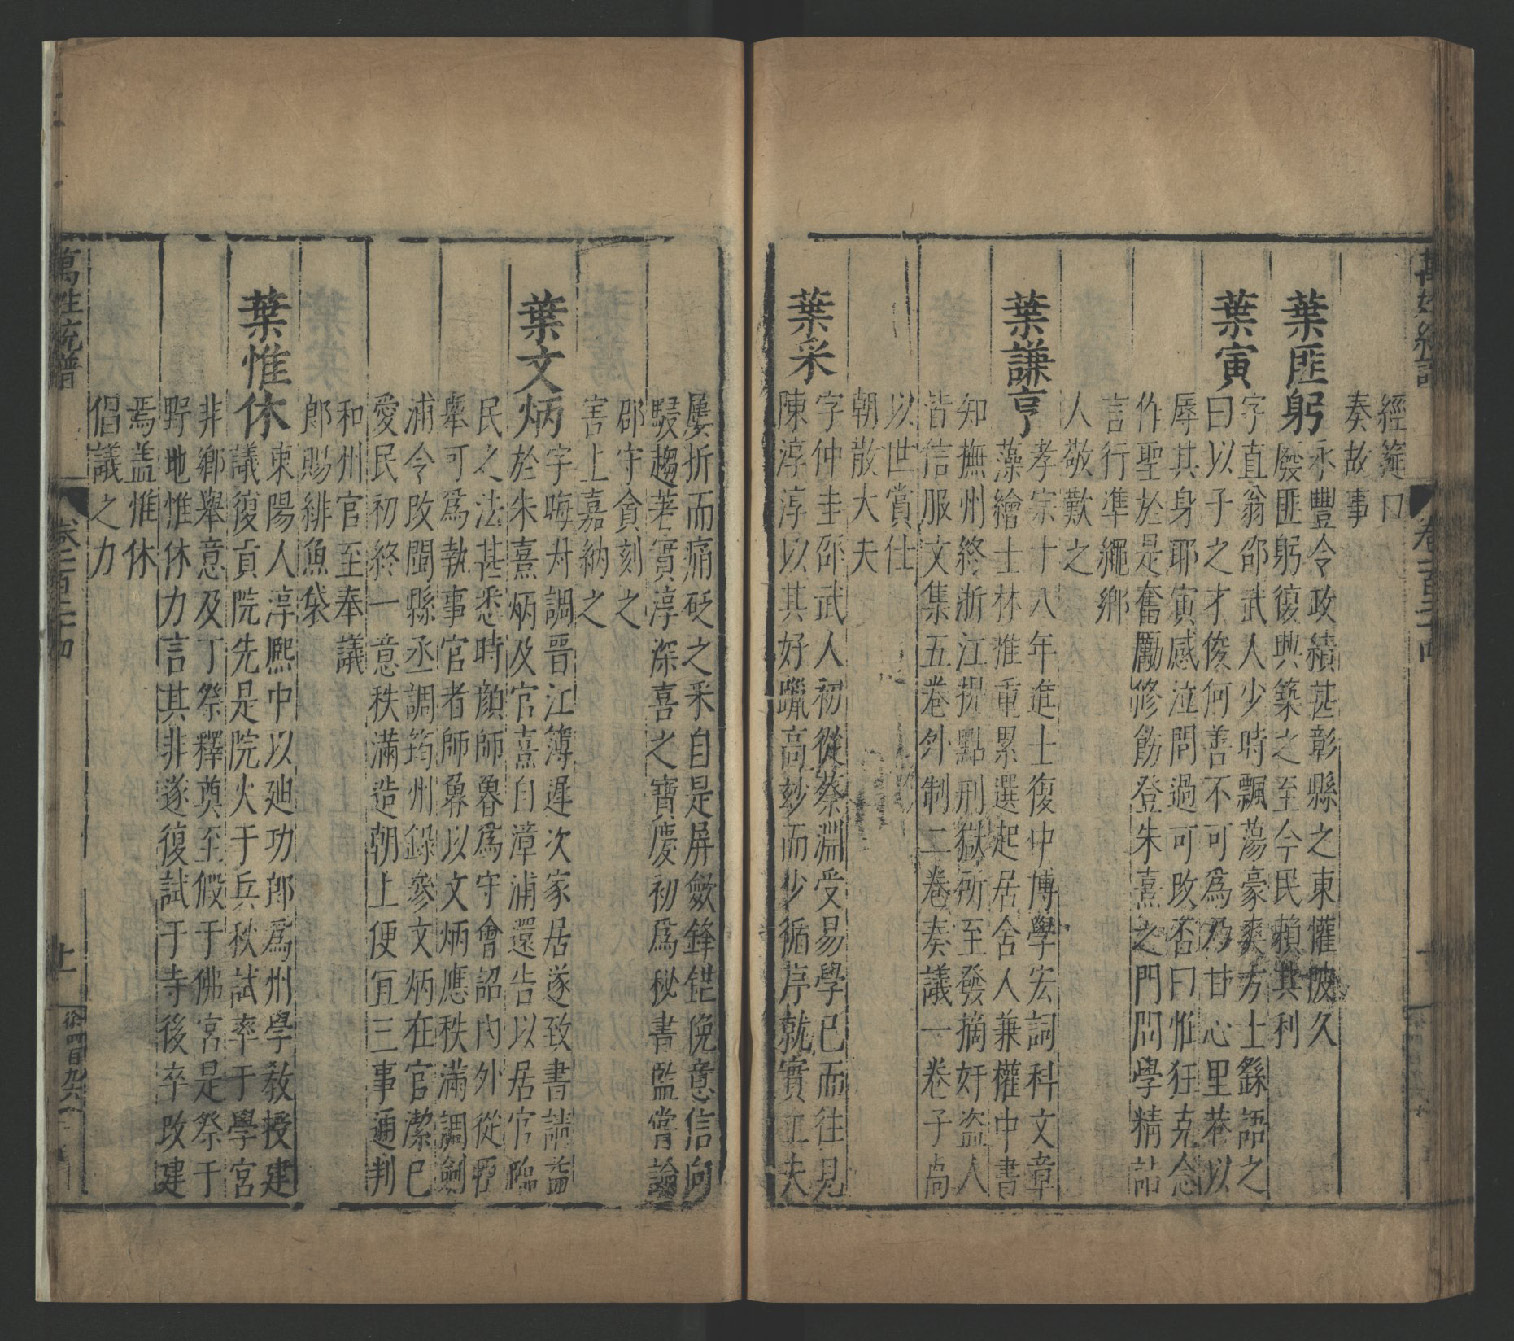 經筵曰
奏故事
葉匪躬永豐令政績甚彰縣之東懽陂久
廢匪躬復興築之至今民賴其利
葉寅字直翁邵武人少時飄蕩豪爽方士繇語之
曰以子之才俊何善不可為乃甘心里巷以
辱其身耶寅感泣問過可攺否曰惟狂克念
作聖於是奮勵修飭登朱熹之門問學精詣
言行準繩鄉
人敬歎之
葉謙亨孝宗十八年進士復中博學宏詞科文章
藻繪士林推重累選起居舍人兼權中書
知撫州終浙江提點刑獄所至發摘奸盜人
皆信服文集五卷外制二卷奏議一卷子尚
以世賞仕
朝散大夫
葉采字仲圭邵武人初從蔡淵受易學已而往見
陳淳淳以其好躐高妙而少循序就實工夫
屢折而痛砭之采自是屏斂鋒鋩俛意信向
駸趨著實淳深喜之寶慶初為秘書監嘗論
郡守貪刻之
害上嘉納之
葉文炳字晦叔調晋江簿遲次家居遂致書請益
於朱熹炳及官熹自漳浦還告以居官臨
民之法甚悉時顔師魯為守會詔內外從臣
舉可為執事官者師魯以文炳應秩滿調劍
浦令攺閩縣丞調筠州錄參文炳在官潔已
愛民初終一意秩滿造朝上便宜三事通判
和州官至奉議
郎賜緋魚袋
葉惟休東陽人淳熙中以廸功郎為州學教授建
議復貢院先是院火于兵秋試率于學宮
非鄉舉意及丁祭釋奠至假于佛宮是祭于
野地惟休力言其非遂復試于寺後卒攺建
焉盖惟休
倡議之力
萬姓統譜
卷一百二十四
十一